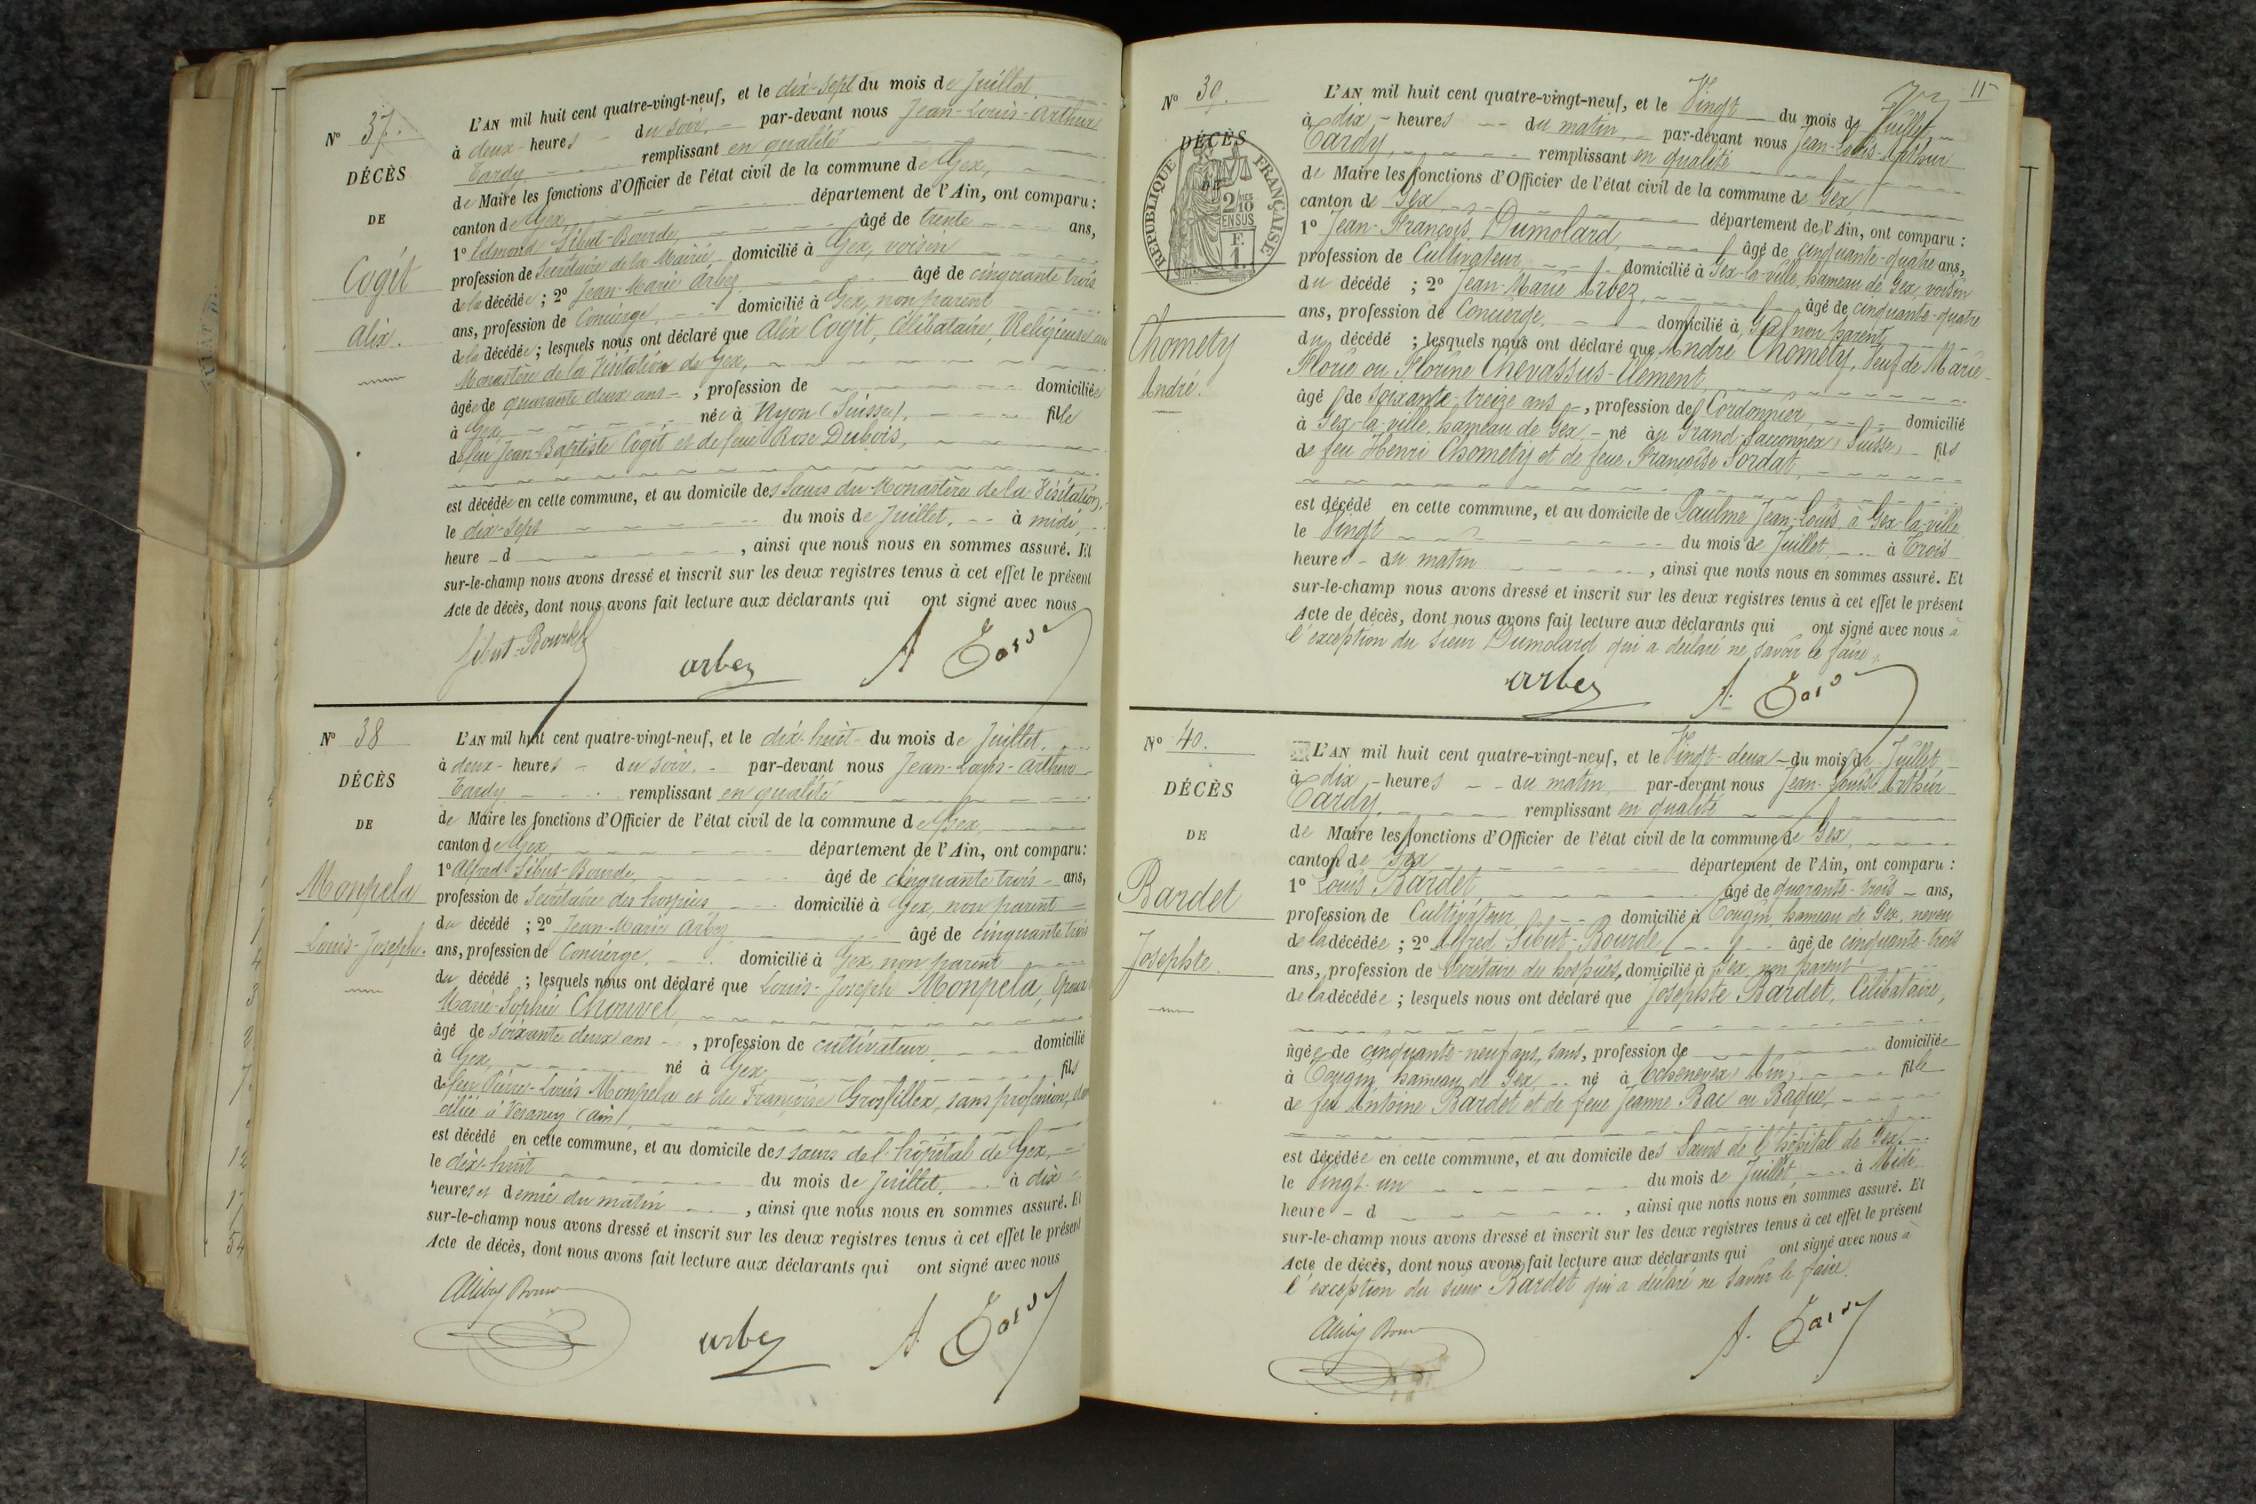 N° 37.
DÉCÈS
DE
Cogit
Alix.
L'AN mil huit cent quatre-vingt-neuf, et le dix-sept du mois de Juillet.
à deux heures du soir, par-devant nous Jean-Louis-Arthur
Tardy remplissant en qualité
de Maire les fonctions d'Officier de l'état civil de la commune de Gex,
canton de Gex département de l'Ain, ont comparu :
1° Edmond Sibut-Bourde, âgé de trente ans,
profession de Secrétaire de la Mairie domicilié à Gex, voisin
de la décédée ; 2° Jean-Marie Arbez, âgé de cinquante trois
ans, profession de Concierge, domicilié à Gex, non parent
de la décédée ; lesquels nous ont déclaré que Alix Cogit, Célibataire, Religieuse au
Monastère de la Visitation de Gex,
âgée de quarante deux ans, profession de domiciliée
à Gex, née à Nyon (Suisse), fille
de feu Jean-Baptiste Cogit et de feue Rose Dubois,
est décédée en cette commune, et au domicile des Sœurs du Monastère de la Visitation,
le dix-sept du mois de Juillet, à midi,
heure d , ainsi que nous nous en sommes assuré. Et
sur-le-champ nous avons dressé et inscrit sur les deux registres tenus à cet effet le présent
Acte de décès, dont nous avons fait lecture aux déclarants qui ont signé avec nous
Sibut-Bourde arbez A Tardy
N° 38
DÉCÈS
DE
Monpela
Louis-Joseph.
L'AN mil huit cent quatre-vingt-neuf, et le dix-huit du mois de Juillet.
à deux heures du soir, par-devant nous Jean-Louis-Arthur
Tardy remplissant en qualité
de Maire les fonctions d'Officier de l'état civil de la commune de Gex,
canton de Gex, département de l'Ain, ont comparu :
1° Alfred Sibut-Bourde, âgé de cinquante trois ans,
profession de Secrétaire des hospices domicilié à Gex, non parent
du décédé ; 2° Jean-Marie Arbez, âgé de cinquante trois
ans, profession de Concierge, domicilié à Gex, non parent
du décédé ; lesquels nous ont déclaré que Louis-Joseph Monpela, Epoux
Marie-Sophie Chouvel,
âgé de soixante deux ans, profession de cultivateur, domicilié
à Gex, né à Gex, fils
de feu Pierre-Louis Monpela et de Françoise Grosfillex, sans profession, domi
ciliée à Vesancy (Ain),
est décédé en cette commune, et au domicile des sœurs de l'hôpital de Gex,
le dix-huit du mois de Juillet, à dix
heures et demie du matin, ainsi que nous nous en sommes assuré. Et
sur-le-champ nous avons dressé et inscrit sur les deux registres tenus à cet effet le présent
Acte de décès, dont nous avons fait lecture aux déclarants qui ont signé avec nous
arbez A. Tardy
11
N° 39.
DÉCÈS
DE
RÉPUBLIQUE FRANÇAISE
2/10 EN SUS
F. 1
Chomety
André.
L'AN mil huit cent quatre-vingt-neuf, et le Vingt du mois de Juillet,
à dix heures du matin, par-devant nous Jean-Louis-Arthur
Tardy, remplissant en qualité
de Maire les fonctions d'Officier de l'état civil de la commune de Gex,
canton de Gex département de l'Ain, ont comparu :
1° Jean-François Dumolard, âgé de cinquante-quatre ans,
profession de Cultivateur domicilié à Gex-la-ville, hameau de Gex, voisin
du décédé ; 2° Jean-Marie Arbez, âgé de cinquante-quatre
ans, profession de Concierge, domicilié à Gex, non parent
du décédé ; lesquels nous ont déclaré que André Chomety, Veuf de Marie-
Florie ou Florine Chevassus-Clement,
âgé de soixante-treize ans, profession de Cordonnier, domicilié
à Gex-la-ville, hameau de Gex, né au Grand-Saconnex, Suisse, fils
de feu Henri Chomety et de feue Françoise Sordat,
est décédé en cette commune, et au domicile de Paulme Jean-Louis à Gex-la-ville
le Vingt du mois de Juillet, à Trois
heures du matin, ainsi que nous nous en sommes assuré. Et
sur-le-champ nous avons dressé et inscrit sur les deux registres tenus à cet effet le présent
Acte de décès, dont nous avons fait lecture aux déclarants qui ont signé avec nous à
l'exception du sieur Dumolard qui a déclaré ne savoir le faire.
arbez A. Tardy
N° 40.
DÉCÈS
DE
Bardet
Josephte.
L'AN mil huit cent quatre-vingt-neuf, et le Vingt-deux du mois de Juillet
à dix heures du matin, par-devant nous Jean-Louis-Arthur
Tardy, remplissant en qualité
de Maire les fonctions d'Officier de l'état civil de la commune de Gex,
canton de Gex département de l'Ain, ont comparu :
1° Louis Bardet, âgé de quarante-trois ans,
profession de Cultivateur domicilié à Tougin, hameau de Gex, neveu
de la décédée ; 2° Alfred Sibut-Bourde, âgé de cinquante-trois
ans, profession de Secrétaire des hospices, domicilié à Gex, non parent
de la décédée ; lesquels nous ont déclaré que Josephte Bardet, Célibataire,
âgée de cinquante-neuf ans, sans, profession de domiciliée
à Tougin, hameau de Gex né à Echenevex, Ain, fille
de feu Antoine Bardet et de feue Jeanne Bac ou Baque,
est décédée en cette commune, et au domicile des Sœurs de l'hôpital de Gex,
le Vingt-un du mois de Juillet à Midi
heure d , ainsi que nous nous en sommes assuré. Et
sur-le-champ nous avons dressé et inscrit sur les deux registres tenus à cet effet le présent
Acte de décès, dont nous avons fait lecture aux déclarants qui ont signé avec nous à
l'exception du sieur Bardet qui a déclaré ne savoir le faire.
A. Tardy